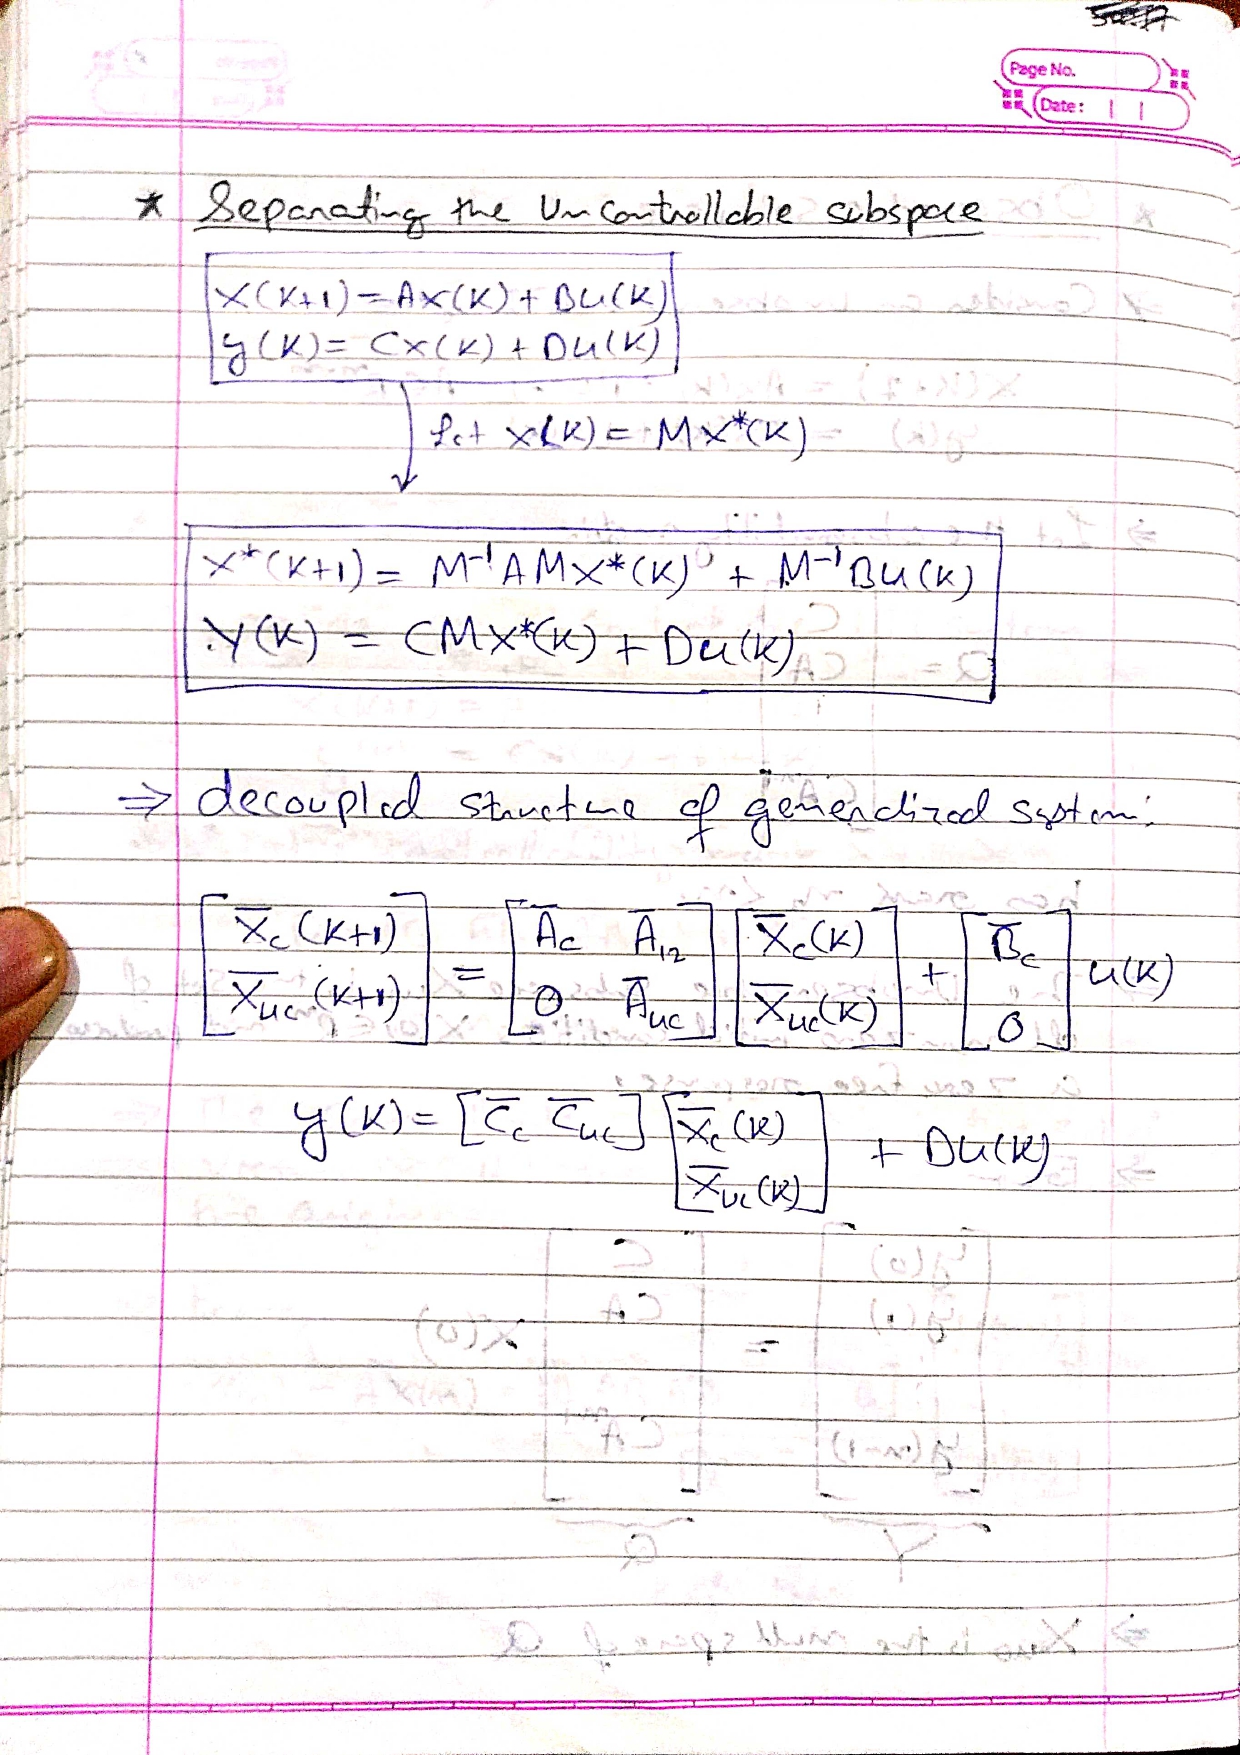 Page No.
Date:
* Separating the Uncontrollable subspace
X(K+1) = AX(K) + BU(K)
y(K) = CX(K) + DU(K)
Let X(K) = MX*(K)
X*(K+1) = M⁻¹AMX*(K) + M⁻¹BU(K)
Y(K) = CMX*(K) + DU(K)
⇒ decoupled structure of generalized system:
[X̅c(K+1) X̅uc(K+1)] = [A̅c A̅12 0 A̅uc] [X̅c(K) X̅uc(K)] + [B̅c 0] U(K)
y(K) = [C̅c C̅uc] [X̅c(K) X̅uc(K)] + DU(K)